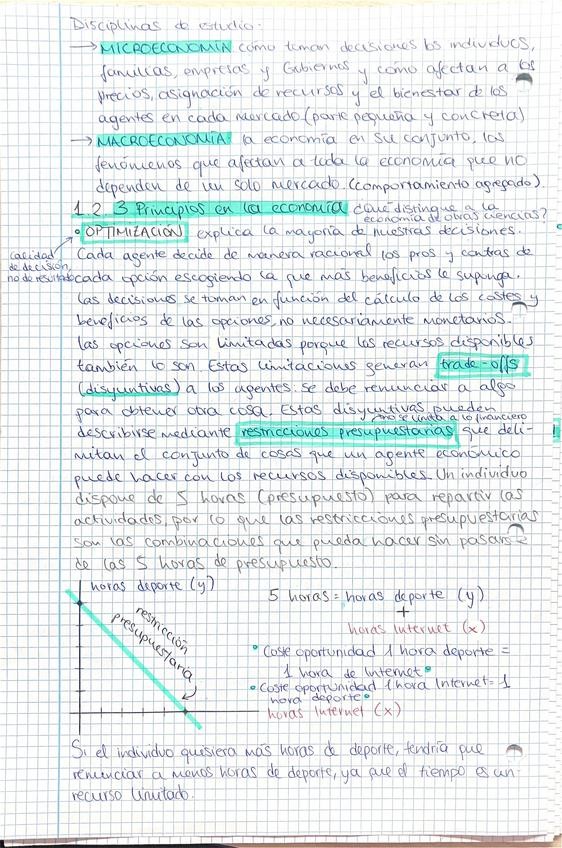 Disciplinas de estudio.
→ MICROECONOMÍA cómo toman decisiones los individuos,
familias, empresas y Gobiernos y cómo afectan a los
precios, asignación de recursos y el bienestar de los
agentes en cada mercado (parte pequeña y concreta)
→ MACROECONOMÍA: la economía en su conjunto, los
fenómenos que afectan a toda la economía que no
dependen de un solo mercado. (comportamiento agregado)
1.2. 3 Principios en la economía ¿Qué distingue a la
economía de otras ciencias?
• OPTIMIZACIÓN explica la mayoría de nuestras decisiones.
calidad
de decisión,
no de resultado
Cada agente decide de manera racional los pros y contras de
cada opción escogiendo la que más beneficios le suponga.
Las decisiones se toman en función del cálculo de los costes y
beneficios de las opciones, no necesariamente monetarios.
Las opciones son limitadas porque los recursos disponibles
también lo son. Estas limitaciones generan trade-offs
(disyuntivas) a los agentes: se debe renunciar a algo
para obtener otra cosa. Estas disyuntivas pueden
no se limita a lo financiero
describirse mediante restricciones presupuestarias que deli-
mitan el conjunto de cosas que un agente económico
puede hacer con los recursos disponibles. Un individuo
dispone de 5 horas (presupuesto) para repartir las
actividades, por lo que las restricciones presupuestarias
son las combinaciones que pueda hacer sin pasarse
de las 5 horas de presupuesto.
horas deporte (y)
restricción
presupuestaria
5 horas = horas deporte (y)
+
horas Internet (x)
• Coste oportunidad 1 hora deporte =
1 hora de Internet•
• Coste oportunidad 1 hora Internet = 1
hora deporte•
horas Internet (x)
Si el individuo quisiera más horas de deporte, tendría que
renunciar a menos horas de deporte, ya que el tiempo es un
recurso limitado.